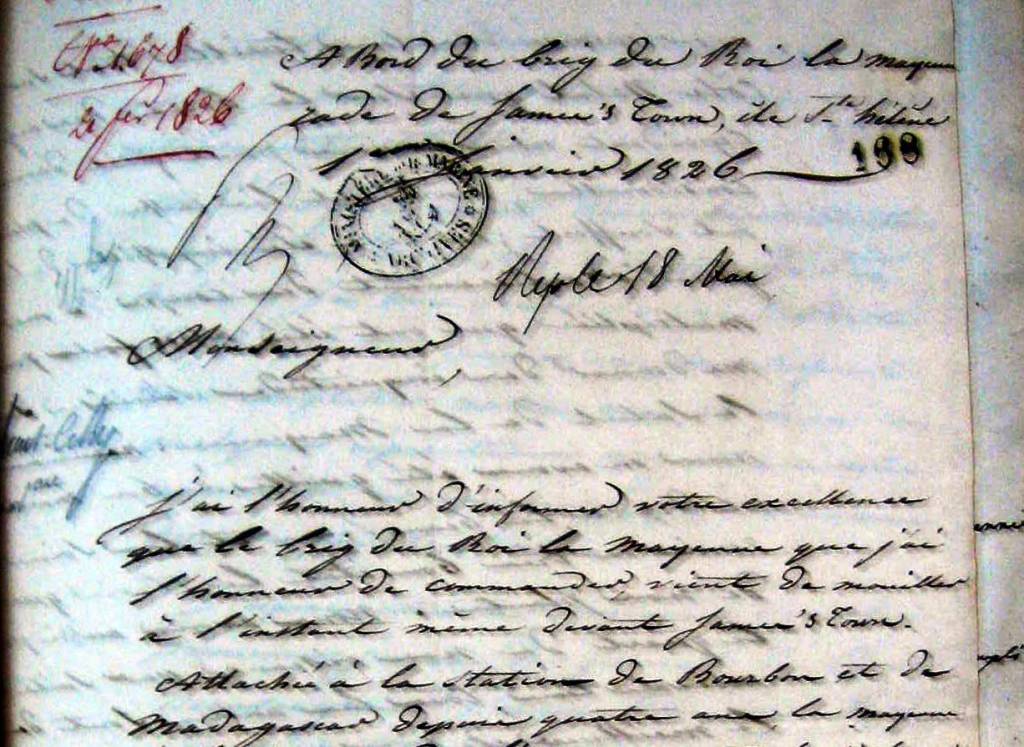 1678
2 fer 1826
A Bord du brig du Roi la mayenne
rade de James's Town, ile Ste hélène
1er janvier 1826
198
MINISTÈRE DE LA MARINE
ARCHIVES
Rep le 18 Mai
Monseigneur,
j'ai l'honneur d'informer votre excellence
que le brig du Roi la mayenne que j'ai
l'honneur de commander, vient de mouiller
à l'instant même devant James's Town.
Attachée à la station de Bourbon et de
Madagascar depuis quatre ans la mayenne